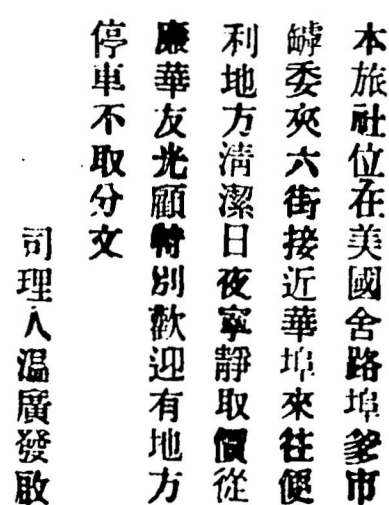 本旅社位在美國舍路埠爹市
罅委夾六街接近華埠來往便
利地方清潔日夜寧靜取價從
廉華友光顧特別歡迎有地方
停車不取分文
司理人温廣發啟